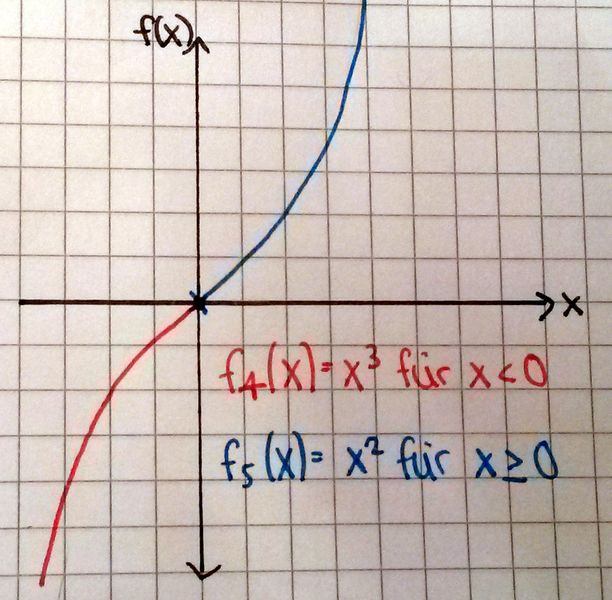 f(x)
x
f₄(x)= x³ für x < 0
f₅(x)= x² für x ≥ 0